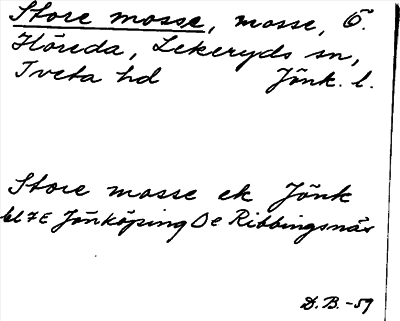 Store mosse, mosse, Ö.
Flöreda, Lekeryds sn,
Tveta hd Jönk. l.
Store mosse ek Jönk
bl 7E Jönköping De Ribbingsnäs
D.B. -59